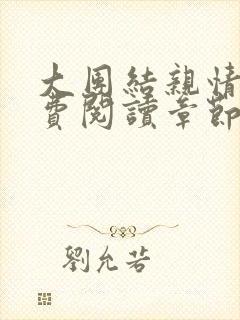 大團結親情
費閱讀章節
劉允若